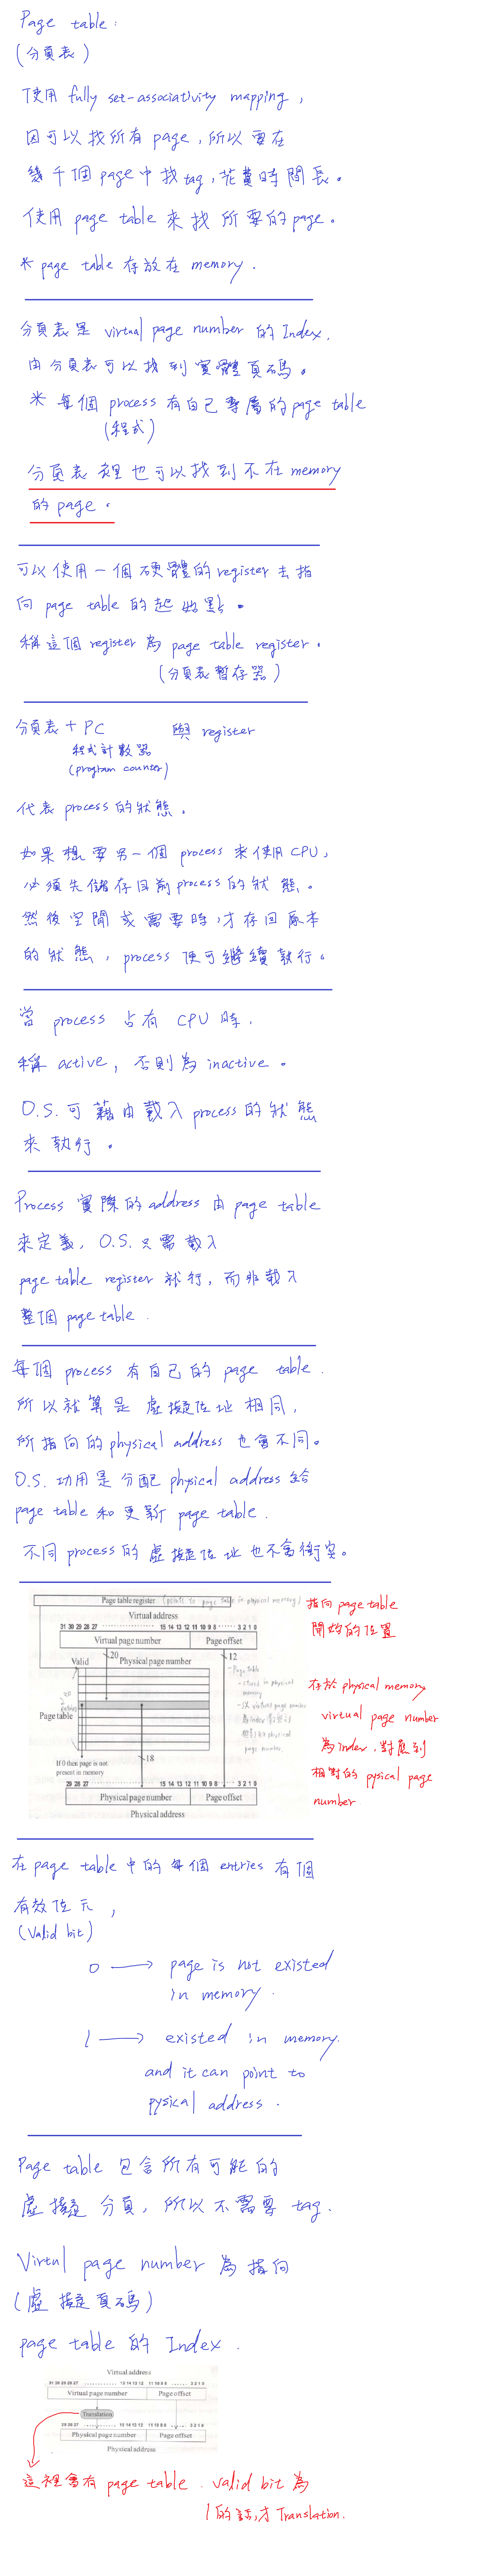 Page table:
(分頁表)
使用 fully set-associativity mapping,
因可以找所有 page, 所以要在
幾千個 page 中找 tag, 花費時間長。
使用 page table 來找所要的 page。
* page table 存放在 memory.
分頁表是 virtual page number 的 Index.
由分頁表可以找到實體頁碼。
* 每個 process 有自己專屬的 page table
(程式)
分頁表裡也可以找到不在 memory
的 page。
可以使用一個硬體的 register 去指
向 page table 的起始點。
稱這個 register 為 page table register.
(分頁表暫存器)
分頁表 + PC 與 register
程式計數器
(program counter)
代表 process 的狀態.
如果想要另一個 process 來使用 CPU,
必須先儲存目前 process 的狀態。
然後空閒或需要時,才存回原本
的狀態, process 便可繼續執行。
當 process 占有 CPU 時,
稱 active, 否則為 inactive。
O.S. 可藉由載入 process 的狀態
來執行。
Process 實際的 address 由 page table
來定義, O.S. 只需載入
page table register 就行, 而非載入
整個 page table.
每個 process 有自己的 page table.
所以就算是虛擬位址相同,
所指向的 physical address 也會不同。
O.S. 功用是分配 physical address 給
page table 和更新 page table.
不同 process 的虛擬位址也不會衝突。
Page table register (points to page table in physical memory)
指向 page table
開始的位置
Virtual address
31 30 29 28 27 ... 15 14 13 12 11 10 9 8 ... 3 2 1 0
Virtual page number Page offset
20 12
Valid Physical page number
- Page table
- stored in physical
memory
Page table
18
If 0 then page is not
present in memory
29 28 27 ... 15 14 13 12 11 10 9 8 ... 3 2 1 0
Physical page number Page offset
Physical address
存於 physical memory
virtual page number
為 index, 對應到
相對的 pysical page
number
在 page table 中的每個 entries 有個
有效位元,
(Valid bit)
0 → page is not existed
in memory.
1 → existed in memory.
and it can point to
pysical address.
Page table 包含所有可能的
虛擬分頁, 所以不需要 tag.
Virtul page number 為指向
(虛擬頁碼)
page table 的 Index.
Virtual address
31 30 29 28 27 ... 15 14 13 12 11 10 9 8 ... 3 2 1 0
Virtual page number Page offset
Translation
29 28 27 ... 15 14 13 12 11 10 9 8 ... 3 2 1 0
Physical page number Page offset
Physical address
這裡會有 page table. Valid bit 為
1 的話,才 Translation.